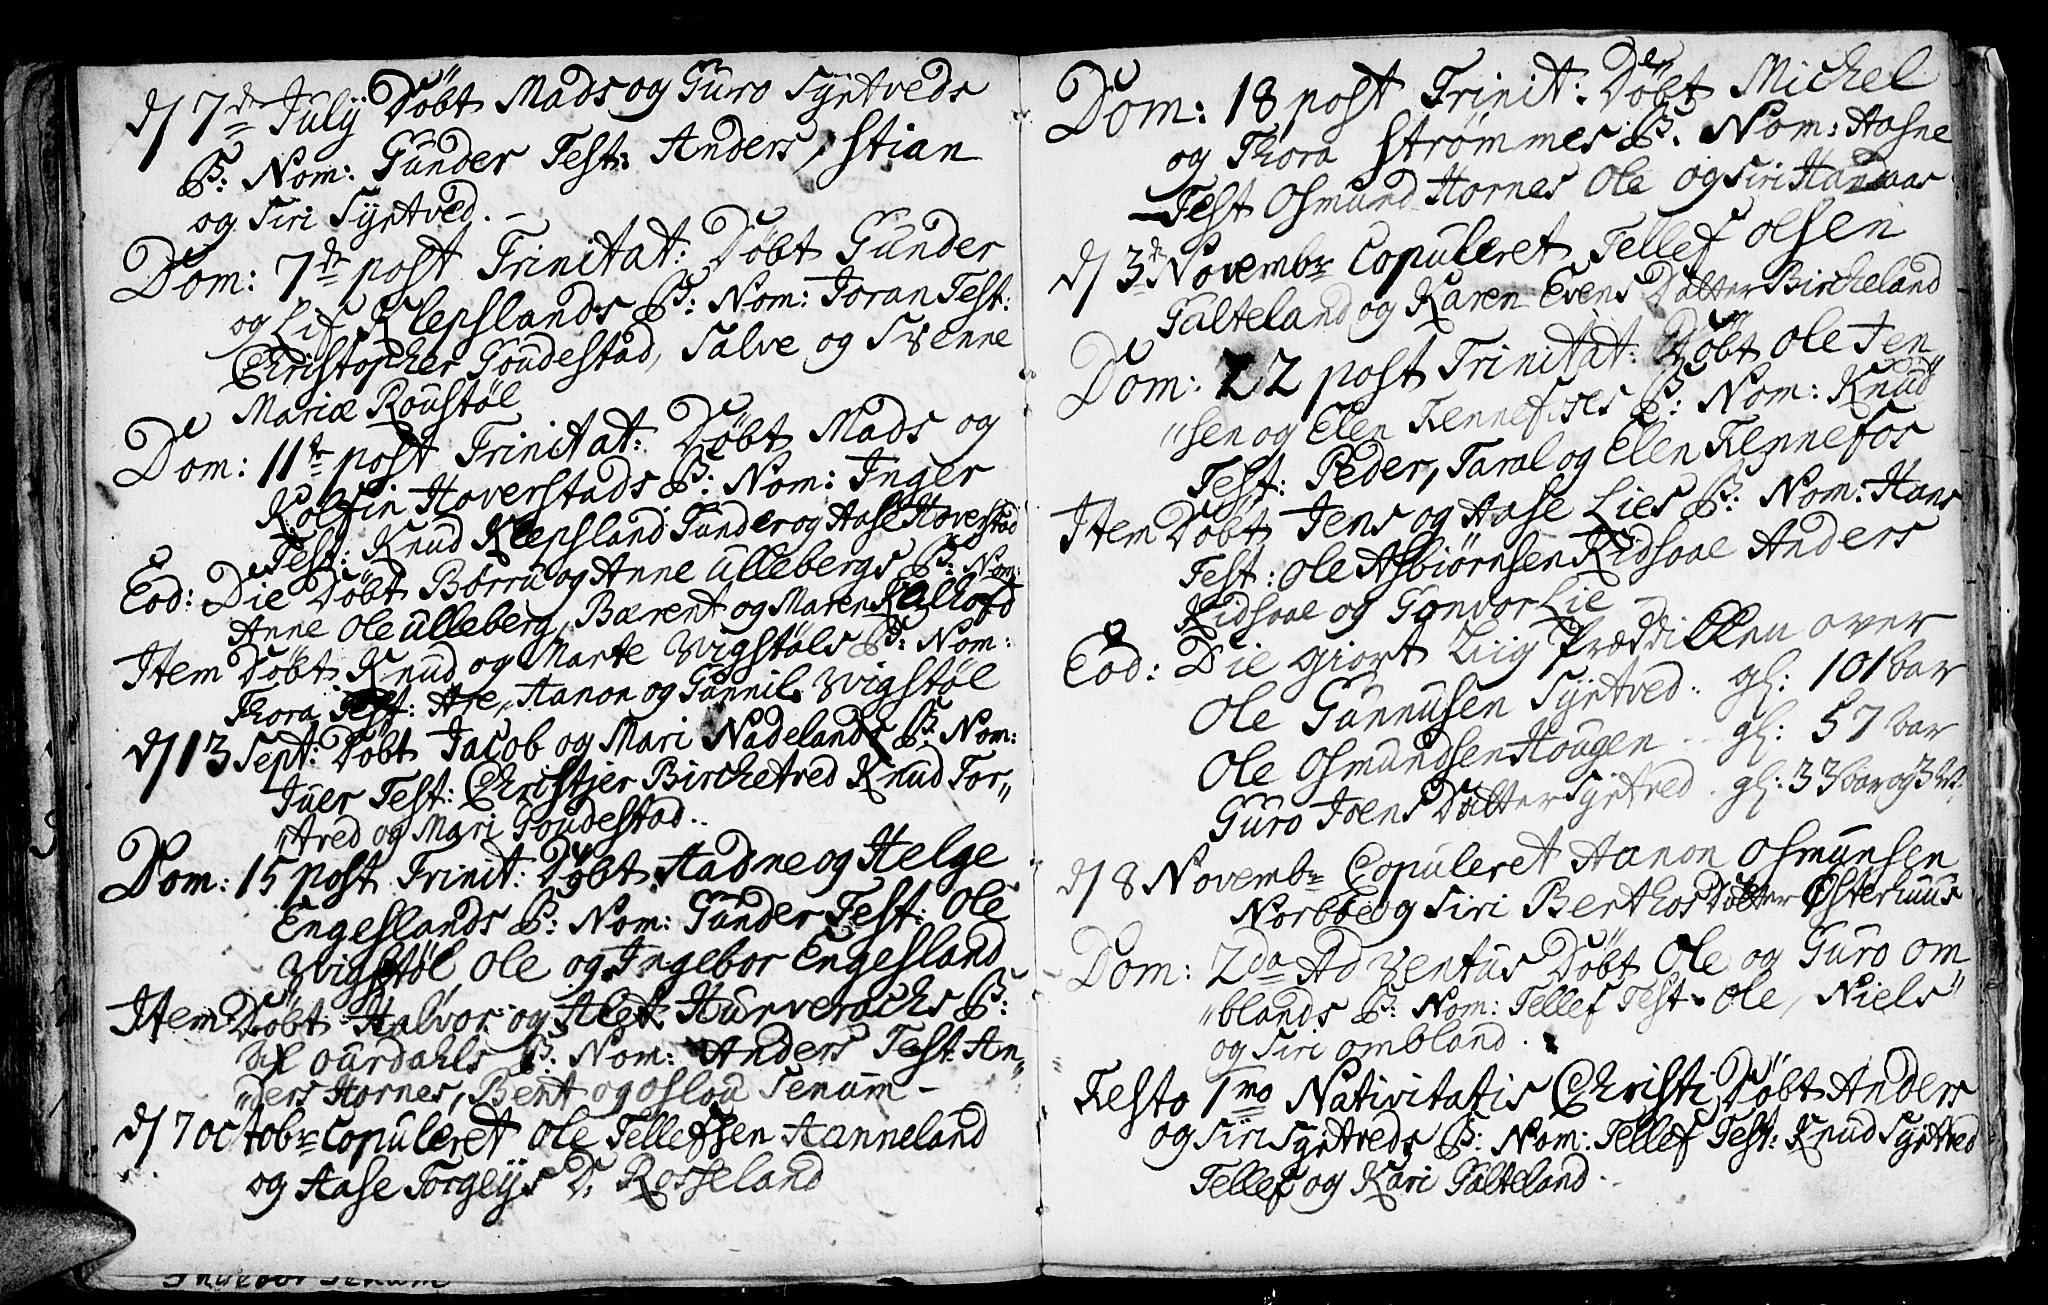 d/ 7de July Døbt Mads og Guro Syrtveds
B: Nom: Gunder Test: Anders, Stian
og Siri Syrtved. –
Dom: 7de post Trinitat: Døbt Gunder
og Lif Klepslands B: Nom: Joran Test:
Christopher Goudestad, Salve og Svenne
Mariæ Roustøl
Dom: 11te post Trinitat: Døbt Mads og
Kolfin Hoverstads B: Nom: Inger
Test: Knud Klepsland Gunder og Aase Hoverstad
Eod: Die Døbt Børru og Anne Ullebergs B: Nom:
Anne Ole Ulleberg, Bærent og Maren
Item Døbt Knud og Marte Wigstøls B: Nom:
Thora Test: Are, Aanon og Gunnil Wigstøl
d/ 13 Sept: Døbt Jacob og Mari Nadelands B: Nom:
Juer Test: Christjer Birchetved Knud Tor"
"tved og Mari Goudestad..
Dom: 15 post Trinit: Døbt Hadne og Helge
Engeslands B: Nom: Gunder Test: Ole
Wigstøl, Ole og Ingebor Engesland
Item Døbt Halvor og Alet Hurveracks B:
Ourdahls B: Nom: Anders Test: An"
"ders Hornes, Bent og Oslou Senum –
d/ 7 Octobr Copuleret Ole Tellefsen Aanneland
og Aase Torgeijs D. Rosseland
Ingebor Senum
Dom: 18 post Trinit: Døbt Michel
og Thora Strømmes B. Nom: Aasne
Test Osmund Hornes Ole og Siri
d/ 3de Novembr Copuleret Tellef Olsen
Galteland og Karen Evens Datter Bircheland
Dom: 22 post Trinitat: Døbt Ole Jen
"sen og Elen Fennefoses B: Nom: Knud"
Test: Peder, Taral og Elen Fennefos
Item Døbt Jens og Aase Lies B: Nom: Hans
Test: Ole Asbiørnsen Kidsaae Anders
Kidsaae og Gonvor Lie –
Eod: Die giort Liig Præddicken over
Ole Gunnusen Syrtved.. gl: 101 bar
Ole Osmundsen Hougen .. gl: 57 bar
Guro Joens Datter Syrtved . gl: 33 bar og 3
d/ 8 Novembr Copuleret Aanon Osmunsen
Norbøe og Siri Berthos Datter Østerhuus
Dom: 2da Adventus Døbt Ole og Guro Om
"blands B: Nom: Tellef Test. Ole, Niels"
og Siri Ombland.
Festo 1mo Nativitatis Christi Døbt Anders
og Siri Syrtveds B: Nom: Tellef Test: Knud Syrtved
Tellef og Kari Galteland.